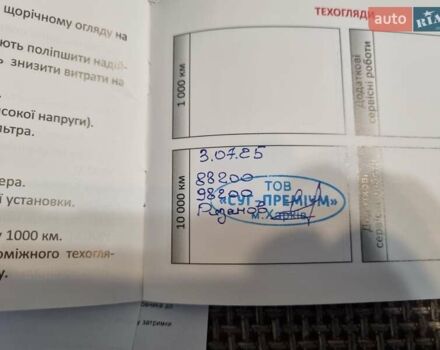 щорічному огляду на
ТЕХОГЛЯДИ
auto RIA
ють поліпшити надій-
знизити витрати на
исокої напруги).
льтра.
ера.
ї установки.
у 1000 км.
оміжного техогля-
у.
1 000 км
Додаткові
сервісні роботи
10 000 км
3.07.25
88200
98200
ТОВ
«СУГ ПРЕМІУМ»
м. Харків
Додаткові
сервісні роботи
затримки